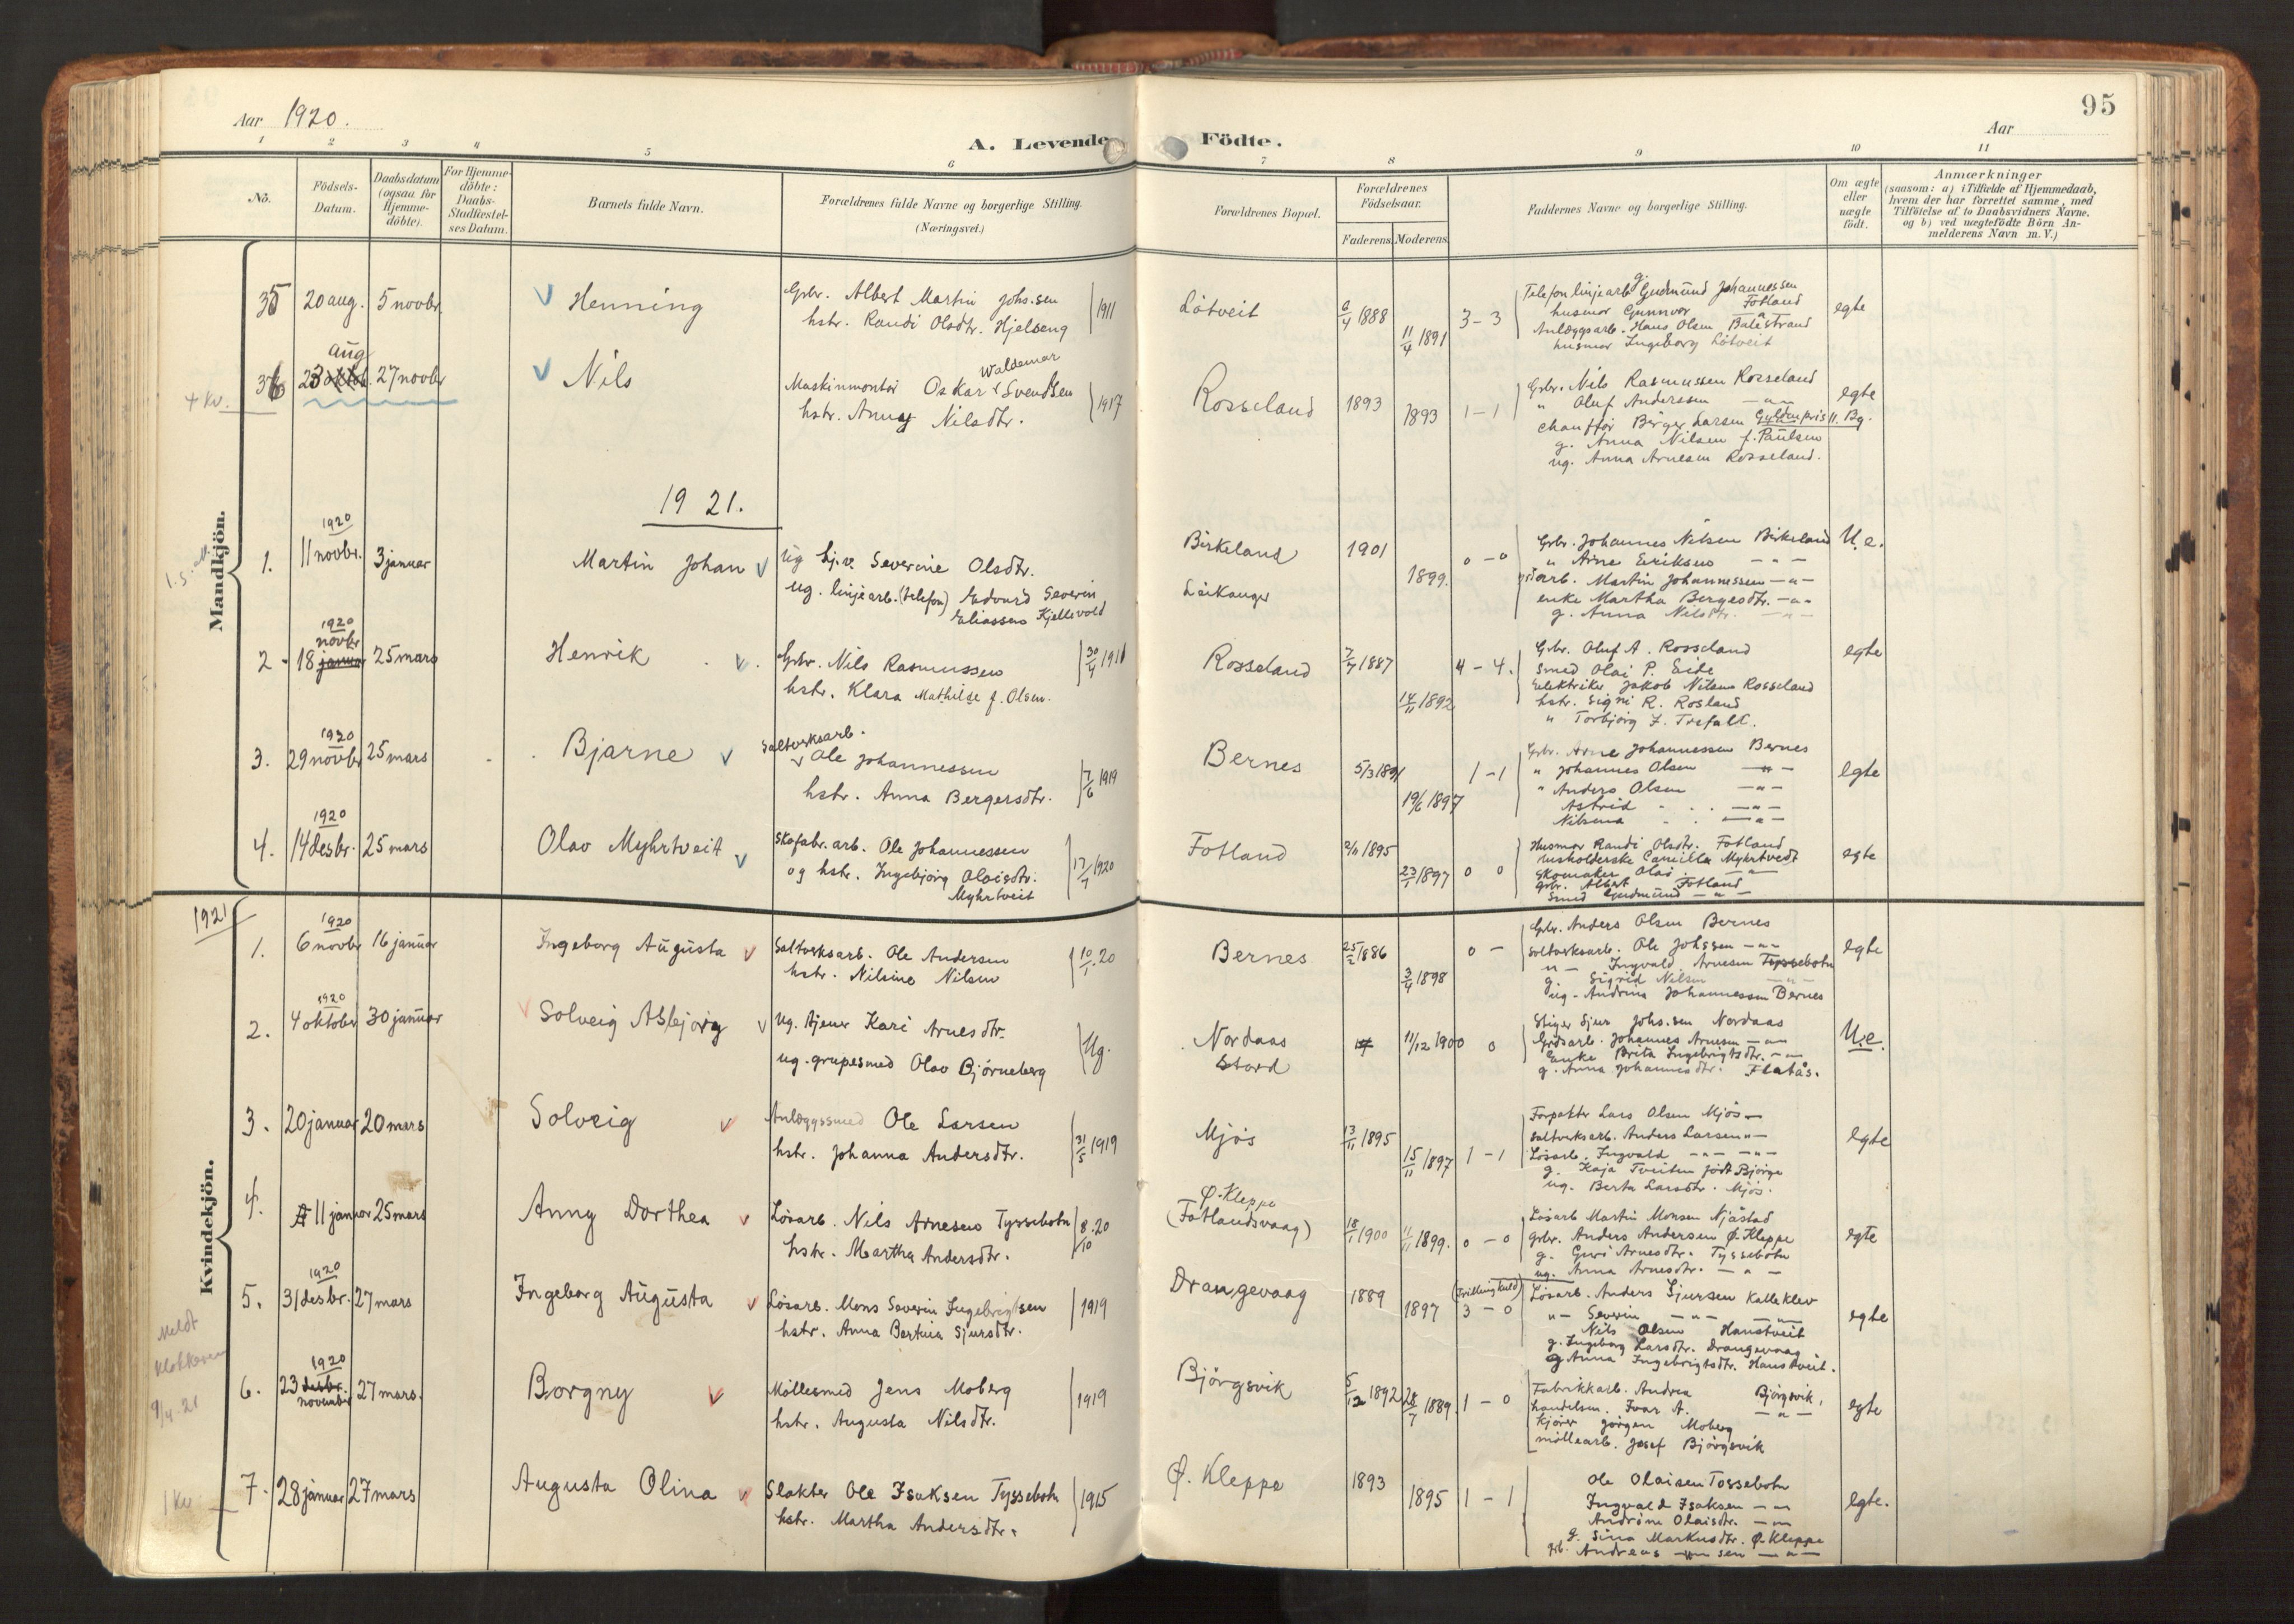 95
Aar 1920.
Aar
A. Levende Födte.
1 2 3 4 5 6 7 8 9 10 11
No.
Födsels-
Datum.
Daabsdatum
(ogsaa for
Hjemme-
döbte).
For Hjemme-
döbte:
Daabs-
Stadfæstel-
ses Datum.
Barnets fulde Navn.
Forældrenes fulde Navne og borgerlige Stilling.
(Næringsvei.)
Forældrenes Bopæl.
Forældrenes
Födselsaar.
Faderens. Moderens.
Faddernes Navne og borgerlige Stilling.
Om ægte
eller
uægte
födt.
Anmærkninger
(saasom: a) i Tilfælde af Hjemmedaab,
hvem der har forrettet samme, med
Tilföielse af to Daabsvidners Navne.
og b) ved uægtefödte Börn An-
melderens Navn m. V.)
Mandkjön.
35 20 aug. 5 novbr Henning
Gbr. Albert Martin Johs.sen
hstr. Randi Olsdtr. Hjelseng
1911
Lötveit
6/4 1888
11/4 1891
3-3
Telefonlinjearb. Gudmund Johannessen
Fotland
husmor Gunnvor -"-
Anlæggsarb. Hans Olsen Balestrand
husmor Ingeborg Lötveit
egte
4 kv.
36 23 aug 27 novbr Nils
Maskinmontör Oskar Waldemar Svendsen
hstr. Anna Nilsdtr.
1917
Rosseland
1893
1893
1-1
Gbr. Nils Rasmussen Rosseland
" Oluf Anderssen -"-
Chaufför Birger Larsen Gyldenpris 11. Bg.
g. Anna Nilsen f. Paulsen
ug. Anna Arnesen Rosseland.
egte
1921.
1920
1. 11 novbr. 3 januar Martin Johan
ug tj.v. Severine Olsdtr.
ug. linjearb. (telefon) Edvard Severin
Eliassen Kjellevold
Birkeland
Leikanger
1901
1899.
0-0
Gbr. Johannes Nilsen Birkeland
" Arne Eriksen -"-
arb. Martin Johannessen -"-
enke Martha Bergesdtr. -"-
g. Anna Nilsdtr. -"-
U.e.
1920
novbr
2 - 18 januar 25 mars Henrik
Gbr. Nils Rasmussen
hstr. Klara Mathilde f. Olsen.
30/4 1911
Rosseland
7/7 1887
14/11 1892
4-4.
Gbr. Oluf A. Rosseland
Smed Olai P. Eide
Elektriker Jakob Nilsen Rosseland
hstr. Signi R. Rosland
" Torbjörg J. Trefall.
egte
1920
3. 29 novbr 25 mars Bjarne
Saltverksarb.
Ole Johannessen
hstr. Anna Bergersdtr.
7/6 1919
Bernes
5/3 1891
19/6 1897
1-1
Gbr. Arne Johannessen Bernes
" Johannes Olsen -"-
" Anders Olsen -"-
Astrid -"-
Nilsena -"-
egte
1920
4. 14 desbr. 25 mars Olav Myhrtveit
Skofabr.arb. Ole Johannessen
og hstr. Ingebjörg Olaisdtr.
Myhrtveit
17/7 1920
Fotland
2/11 1895
23/1 1897
0 0
Husmor Randi Olsdtr. Fotland
husholderske Camilla Myhrtvedt
Skomaker Olai -"-
Gbr. Albert Fotland
Smed Gudmund -"-
egte
1921
Kvindekjön.
1920
1. 6 novbr 16 januar Ingeborg Augusta
Saltverksarb. Ole Andersen
hstr. Nilsine Nilsen
10/1.20
Bernes
25/2 1886
3/4 1898
0 -
Gbr. Anders Olsen Bernes
Saltverksarb. Ole Johssen -"-
-"- Ingvald Arnesen Tyssebotn
g. Sigrid Nilsen -"-
ug. Andrina Johannessen Bernes
egte
1920
2. 4 oktober 30 januar Solveig Asbjørg
ug. tjener Kari Arnesdtr.
ug. grupesmed Olav Bjørneberg
Ug.
Nordaas
Stord
11/12 1900
0
Stiger Sjur Johs.sen Nordaas
Grdsarb. Johannes Arnesen -"-
Enke Brita Ingebrigtsdtr. -"-
g. Anna Johannesdtr. Flatås.
U.e.
3. 20 januar 20 mars Solveig
Anlæggssmed Ole Larsen
hstr. Johanna Andersdtr.
31/5 1919
Mjös
13/11 1895
15/11 1897
1-1
Forpakter Lars Olsen Mjös
Saltverksarb. Anders Larsen -"-
Lösarb. Ingvald -"- -"-
g. Kaja Tveiten födt Bjørge
ug. Berta Larsdtr. Mjös.
egte
4. 11 januar 25 mars Anny Dorthea
Lösarb. Nils Arnesen Tyssebotn
hstr. Martha Andersdtr.
8/10.20
Ø. Kleppe
(Fotlandsvaag)
18/1 1900
11/11 1899.
0-0
Lösarb Martin Monsen Njåstad
Gbr. Anders Andersen Ø. Kleppe
g. Guri Arnesdtr. Tyssebotn
ug. Anna Arnesdtr. -"-
egte
1920
5. 31 desbr. 27 mars Ingeborg Augusta
Lösarb. Mons Severin Ingebrigtsen
hstr. Anna Bertina Sjursdtr.
1919
Drangevaag
1889
1897
(Trilling kuld)
3-0
Lösarb. Anders Sjursen Kalleklev
-"- Severin -"- -"-
Nils Olsen Hanstveit
g. Ingeborg Larsdtr. Drangevaag
g. Anna Ingebrigtsdtr. Hanstveit.
egte
Meldt
klokkeren
9/4-21
1920
6. 23 desbr. 27 mars. Borgny
november
Möllesmed Jens Moberg
hstr. Augusta Nilsdtr.
1919
Björgsvik
5/12 1892
28/7 1889.
1-0
Fabrikkarb. Andrea Björgsvik,
handelsm. Ivar A. -"-
Kjörer Jörgen Moberg
möllearb. Josef Björgsvik
egte
1 kv.
7. 28 januar 27 mars Augusta Olina
Slakter Ole Isaksen Tyssebotn
hstr. Martha Andersdtr.
1915
Ø. Kleppe
1893
1895
1-1
Ole Olaisen Tossebotn
Ingvald Isaksen -"-
Andrine Olaisdtr. -"-
g. Sina Markusdtr. Ø. Kleppe
Gb. Andreas -"- sen -"-
egte.